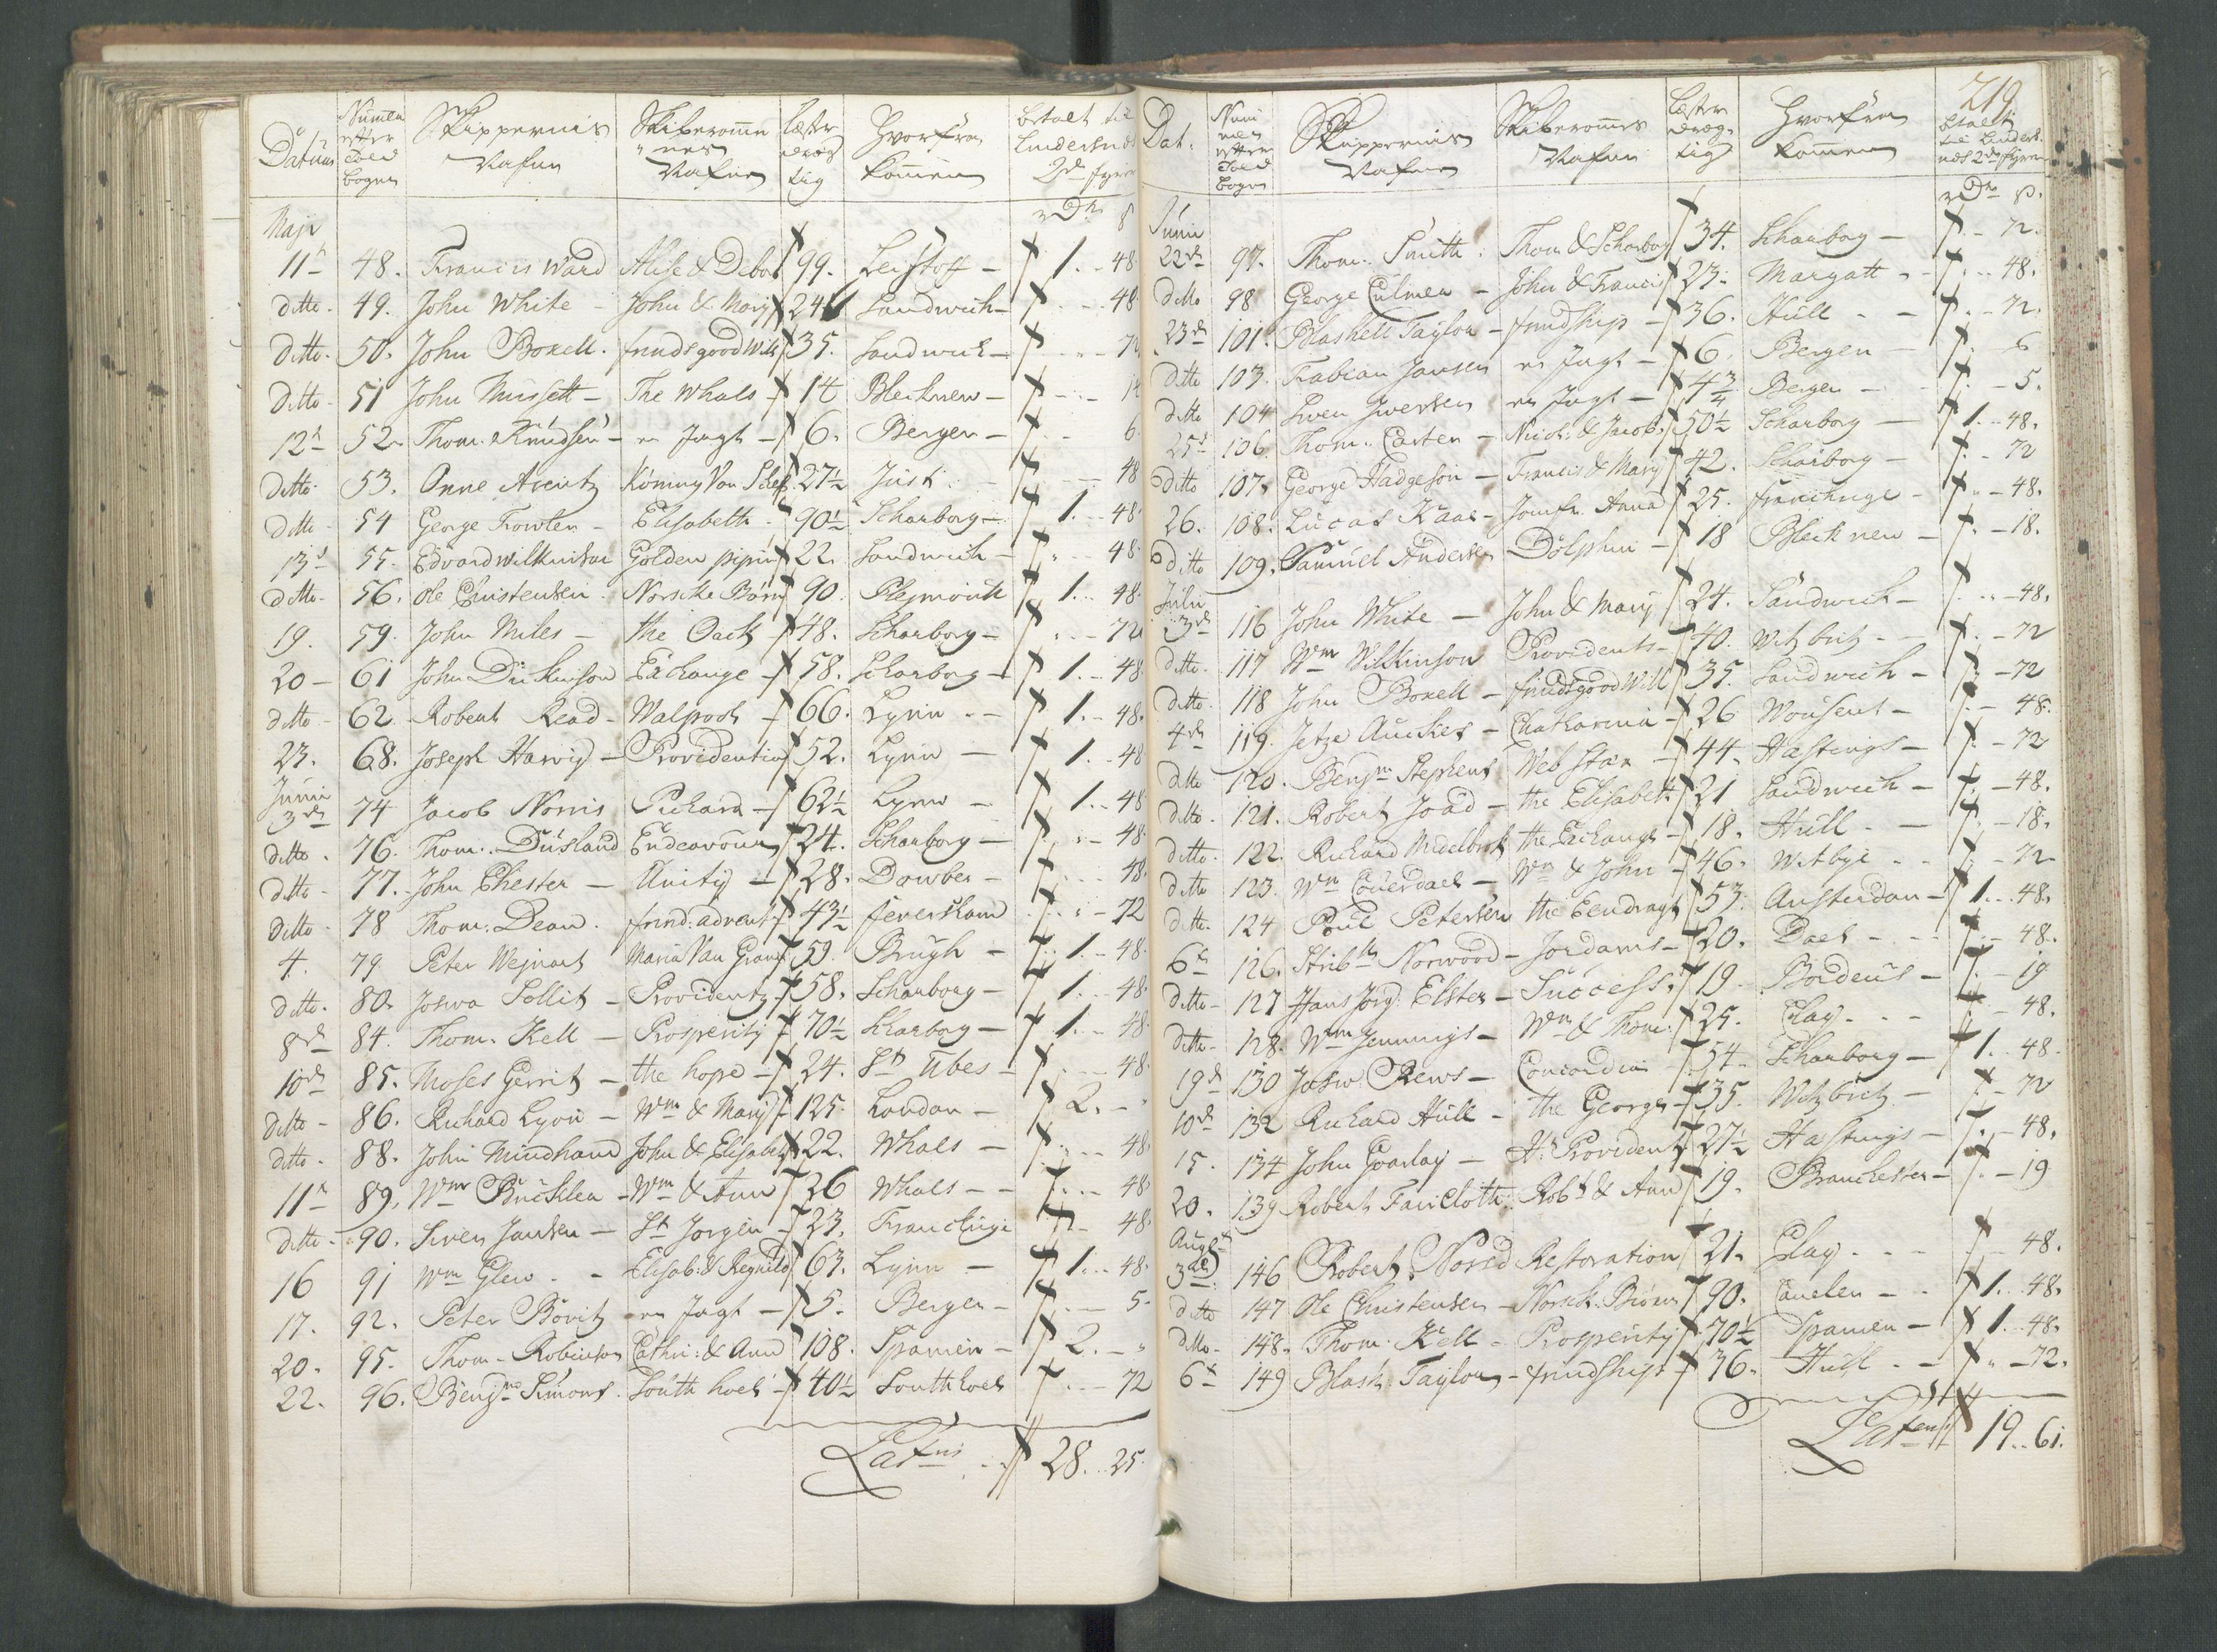 Datum Numer efter Told bogen Skippernis Nafne Skiberomme nes Nafne Læster dræg tig Hvorfra kommen betalt til Lindersnes 2de fyrer
rDr s
Maji
11t 48. Francis Ward Alise & Debo 99. Leistoff - 1 .. 48
ditto. 49. John White - John & Mary 24 Sandwich - 48
ditto. 50. John Boxell. frindsgoodWill 35. Sandwich - 72
ditto. 51 John Mussett - The Whals - 14 Blecknew - 14
12t 52. Thom: Knudsen - en Jagt - 6. Bergen - 6
ditto. 53. Onne Arentz Konning Von 27½ Just 48
ditto 54 George Fowler - Elisabeth 90½ Scharborg - 1. .. 48
13t 55. Edvard Wilkinson Golden pipin 22. Sandwich - 48
ditto. 56. Ole Christensen. Norske Biørn 90. Pleymouth 1. .. 48
19. 59. John Miles - the Oack - 48. Scharborg - 72
20 - 61 John Dickinson Exchange - 58. Scharborg - 1. .. 48
ditto - 62. Robert Read - Walpool - 66. Lynn - 1. .. 48.
23. 68. Joseph Harvig - Providentia 52. Lynn - 1. .. 48
Junii
3de 74 Jacob Norris Richard - 62½ Lynn - 1. .. 48
ditto. 76. Thom. Dusland Endeavour 24. Scharborg - 48
ditto. 77. John Chester - Unity - 28. Dowber - 48.
ditto - 78 Thom: Dean. frind: advent 43½ feversham - 72
4. 79. Peter Wejnart Maria Van Gran 59. Brugh - 1. - 48.
ditto. 80. Joswa Sollit - Providenty - 58. Scharborg - 1. .. 48.
8de 84. Thom. Kell - Prosperity 70½ Scharborg - 1. .. 48
10de 85. Moses Gerrit - the hope - 24. St Ubes - 48.
ditto - 86. Richard Lyon - Wm & Mary 125. London - 2. -
ditto. 88. John Mindhand John & Elisabet 22. Whals - 48.
11t 89. Wm Buckler - Wm & Ann 26 Whals - - 48
ditto - 90. Siven Jansen - St Jorgen - 23. Franclinge 48.
16 91 Wm Glew - - Elisab: & Regnild 63. Lynn - 1. .. 48.
17. 92. Peter Bøvitz en Jagt - 5. Bergen - 5.
20. 95. Thom - Robinson Cathri: & Ann 108. Spanien - 2. -
22. 96. Benjmn Simons. South hoel - 40½ Southhoel 72
Latus .. 28. .. 25.
219
Dat. Num mer efter Told bogen Skippernis Nafne Skiberommes Nafne Læster dræg tig Hvorfra kommen betalt til Linders nes 2de fyrer
rDr s.
Junii
22de 97. Thom: Smith: Thom & Scharborg 34. Scharborg - 72.
ditto 98 George Culmer - John & Francis 23. Margatt - - 48.
23de 101. Blashell Taylor - frindship - 36. Hull - - 72.
ditto 103. Fabian Jansen en Jagt - 6. Bergen - 6
ditto 104 Iwer Iwersen en Jagt - 4¾ Bergen - 5.
25t 106. Thom: Carter - Nich: & Jacob. 50½ Scharborg - 1. .. 48.
ditto 107. George Hadgeson - Francis & Mary 42. Scharborg - 72
26. 108. Lucas Kaas - Jomfr. Anna 25. franckrige - 48.
ditto 109. Samuel Andersen Dolphin - 18 Bleck new - 18.
Julii
3de 116 John White - John & Mary 24. Sandwich - 48.
ditto. 117 Wm Wilkinson Providents - 40. Witzbitz - 72
ditto. 118 John Boxell - frindsgoodWill 35. Sandwich - 72
4de 119. Jetze Auckes - Chatharina - 26 Wonsent - 48.
ditto 120. Benjm Stephens Web star - 44. Hastings - 72
ditto. 121. Robert Joad - the Elisabett 21 Sandwich - 48.
ditto. 122. Richard Middelbrok the Exchange - 18. Hull. - 18.
ditto 123. Wm Coverdael - Wm & John - 46. Witbye 72
ditto. 124 Poul Petersen the Eendragt 53. Amsterdam - 1. .. 48.
6te 126. Norwood - Jordanis - 20. Dael - 48.
ditto - 127 Hans Jorg: Elster - Success. 19. Bordeus - 19
ditto - 128. Wm Jennings - Wm & Thom: 25. Clay. 48.
19de 130 Josw: Rews - Concordia - 54. Scharborg - 1. .. 48.
10de 132 Richard Hull - the George - 35. Witzbitz - 72
15. 134 John Goarlay - Provident 27½ Hastings - 48.
20. 139 Robert Fair Cloth Robt & Ann 19. Branchester - 19
Augst
3de 146 Robert Nored Restoration 21. Clay. - 48.
ditto 147 Ole Christensen - Norsk: Biørn 90. Canelen - 1. .. 48.
ditto - 148. Thom. Kell - Prosperity 70½ Spanien - 1. .. 48.
6te 149 Blash: Taylor - frindship - 36. Hull. - - 72.
Latus 19. .. 61.